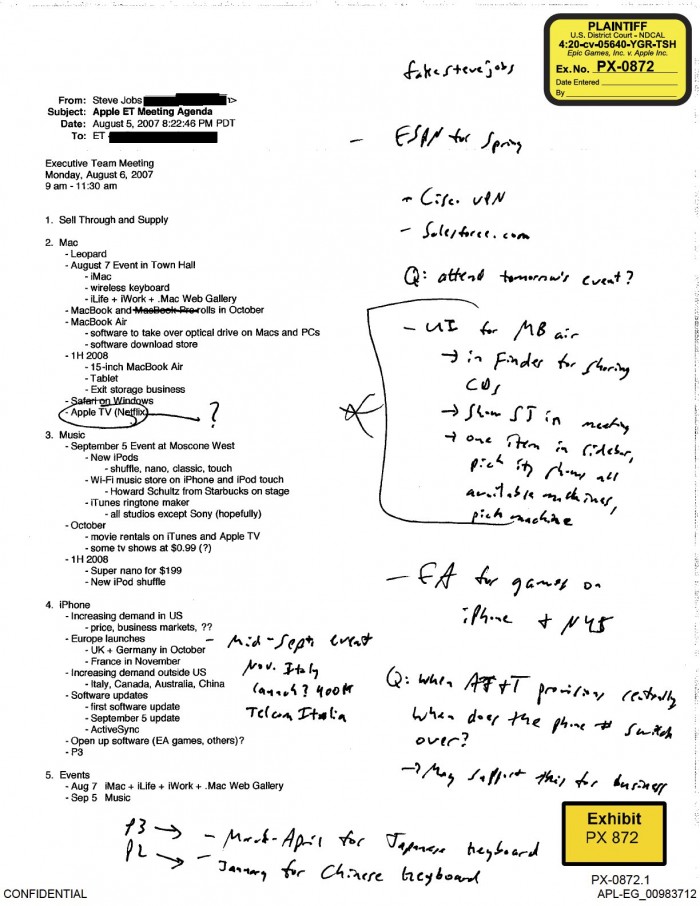 PLAINTIFF
U.S. District Court - NDCAL
4:20-cv-05640-YGR-TSH
Epic Games, Inc. v. Apple Inc.
Ex. No. PX-0872
Date Entered
By
fakestevejobs
From: Steve Jobs
Subject: Apple ET Meeting Agenda
Date: August 5, 2007 8:22:46 PM PDT
To: ET
Executive Team Meeting
Monday, August 6, 2007
9 am - 11:30 am
1. Sell Through and Supply
2. Mac
- Leopard
- August 7 Event in Town Hall
- iMac
- wireless keyboard
- iLife + iWork + .Mac Web Gallery
- MacBook and MacBook Pro rolls in October
- MacBook Air
- software to take over optical drive on Macs and PCs
- software download store
- 1H 2008
- 15-inch MacBook Air
- Tablet
- Exit storage business
- Safari on Windows
- Apple TV (Netflix) → ?
3. Music
- September 5 Event at Moscone West
- New iPods
- shuffle, nano, classic, touch
- Wi-Fi music store on iPhone and iPod touch
- Howard Schultz from Starbucks on stage
- iTunes ringtone maker
- all studios except Sony (hopefully)
- October
- movie rentals on iTunes and Apple TV
- some tv shows at $0.99 (?)
- 1H 2008
- Super nano for $199
- New iPod shuffle
4. iPhone
- Increasing demand in US
- price, business markets, ??
- Europe launches
- UK + Germany in October
- France in November
- Increasing demand outside US
- Italy, Canada, Australia, China
- Software updates
- first software update
- September 5 update
- ActiveSync
- Open up software (EA games, others)?
- P3
5. Events
- Aug 7 iMac + iLife + iWork + .Mac Web Gallery
- Sep 5 Music
- ESPN for Spring
- Cisco VPN
- Salesforce.com
Q: attend tomorrow's event?
- UI for MB air
→ in Finder for sharing
CDs
→ Show SJ in meeting
→ one item in sidebar,
pick it, shows all
available machines,
pick machine
- EA for games on
iPhone + N45
- Mid-Sept event
Nov. Italy
launch?
Telecom Italia
Q: When AT&T provisions centrally
when does the phone # switch
over?
→ May support this for business
P3 → - March-April for Japanese keyboard
P2 → - January for Chinese keyboard
Exhibit
PX 872
CONFIDENTIAL
PX-0872.1
APL-EG_00983712